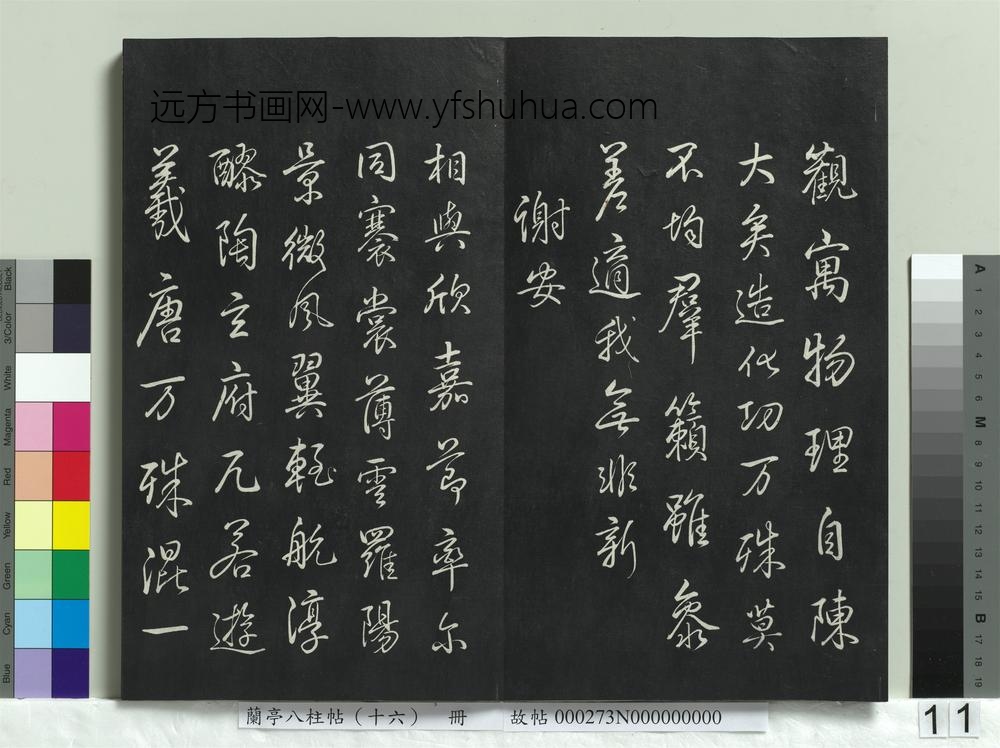 远方书画网-www.yfshuhua.com
觀寓物理自陳
大矣造化功万殊莫
不均羣籟雖參
差適我無非新
謝安
相與欣嘉節率尔
同褰裳薄雲羅陽
景微風翼輕航淳
醪陶玄府兀若遊
羲唐万殊混一
Black
3/Color
White
Magenta
Red
Yellow
Green
Cyan
Blue
A
1
2
3
4
5
6
M
8
9
10
11
12
13
14
15
B
17
18
19
蘭亭八柱帖（十六） 冊 故帖 000273N000000000
11